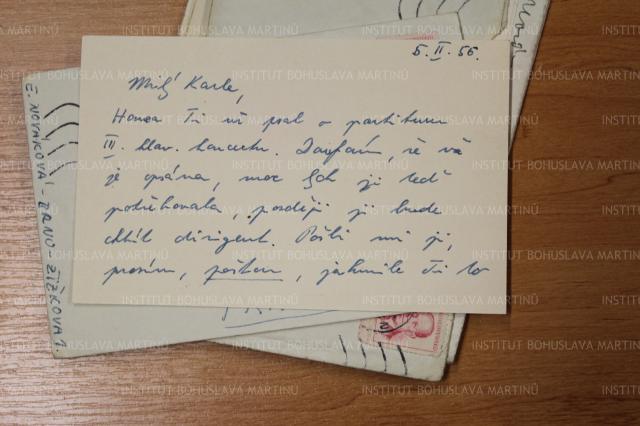 5. II. 56.
Milý Karle,
Honza Ti už psal o partituru
III. klav. koncertu. Doufám, že už
je opsána, moc bych ji teď
potřebovala, později ji bude
chtít dirigent. Pošli mi ji,
prosím, poštou, jakmile Ti to
E. NOVÁKOVÁ - BRNO - ŽIŽKOVA
INSTITUT BOHUSLAVA MARTINŮ